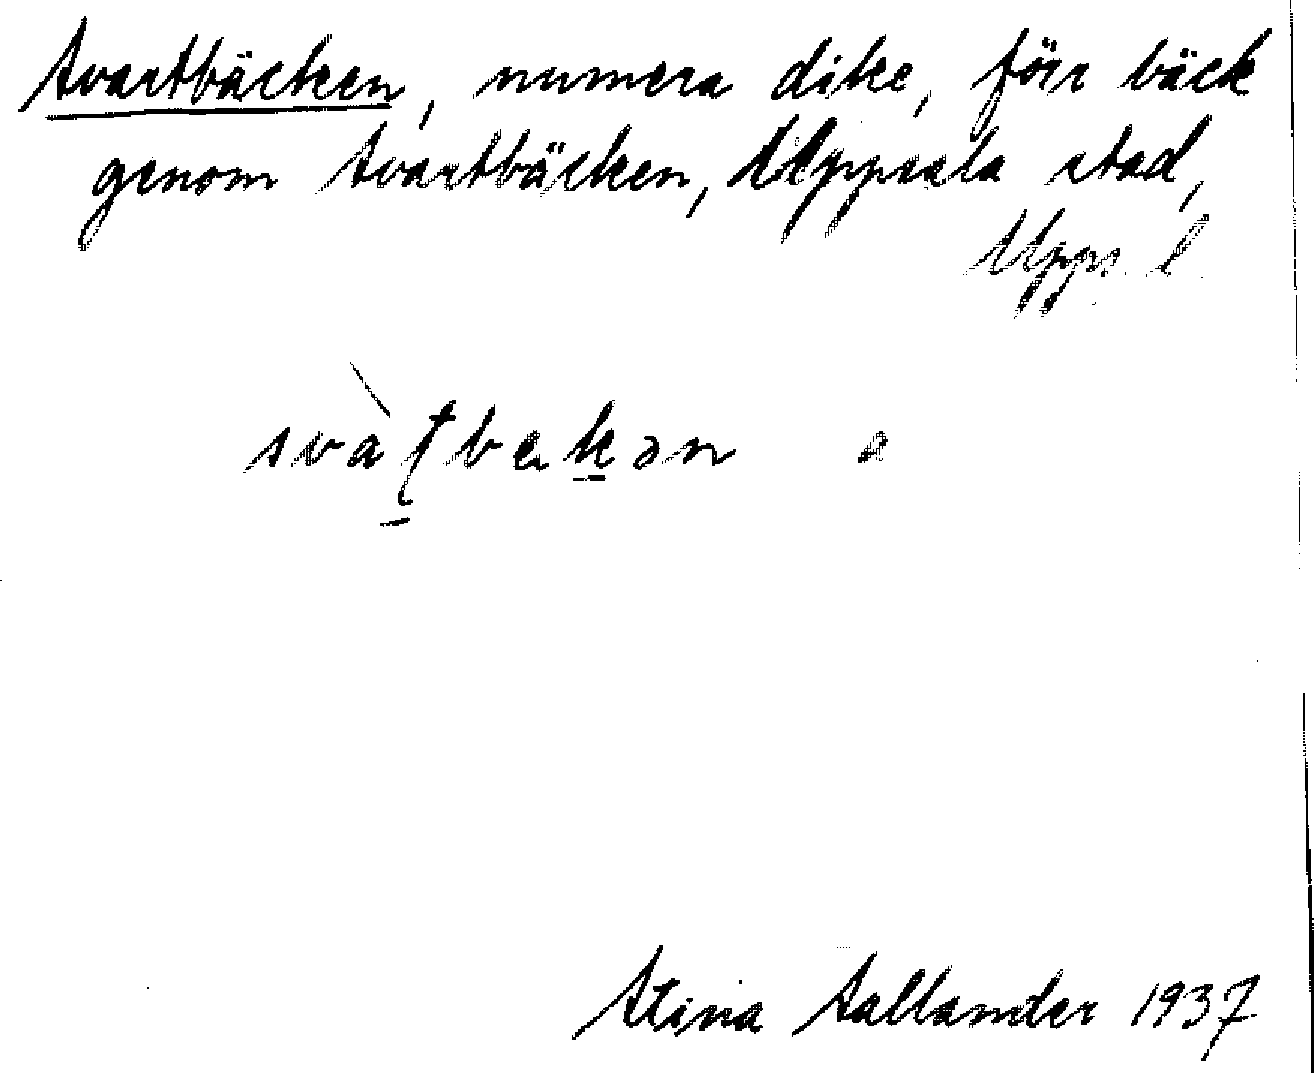 Svartbäcken, numera dike, förr bäck
genom Svartbäcken, Uppsala stad,
Upps. l.
svàʈbekən a
Stina Sallander 1937